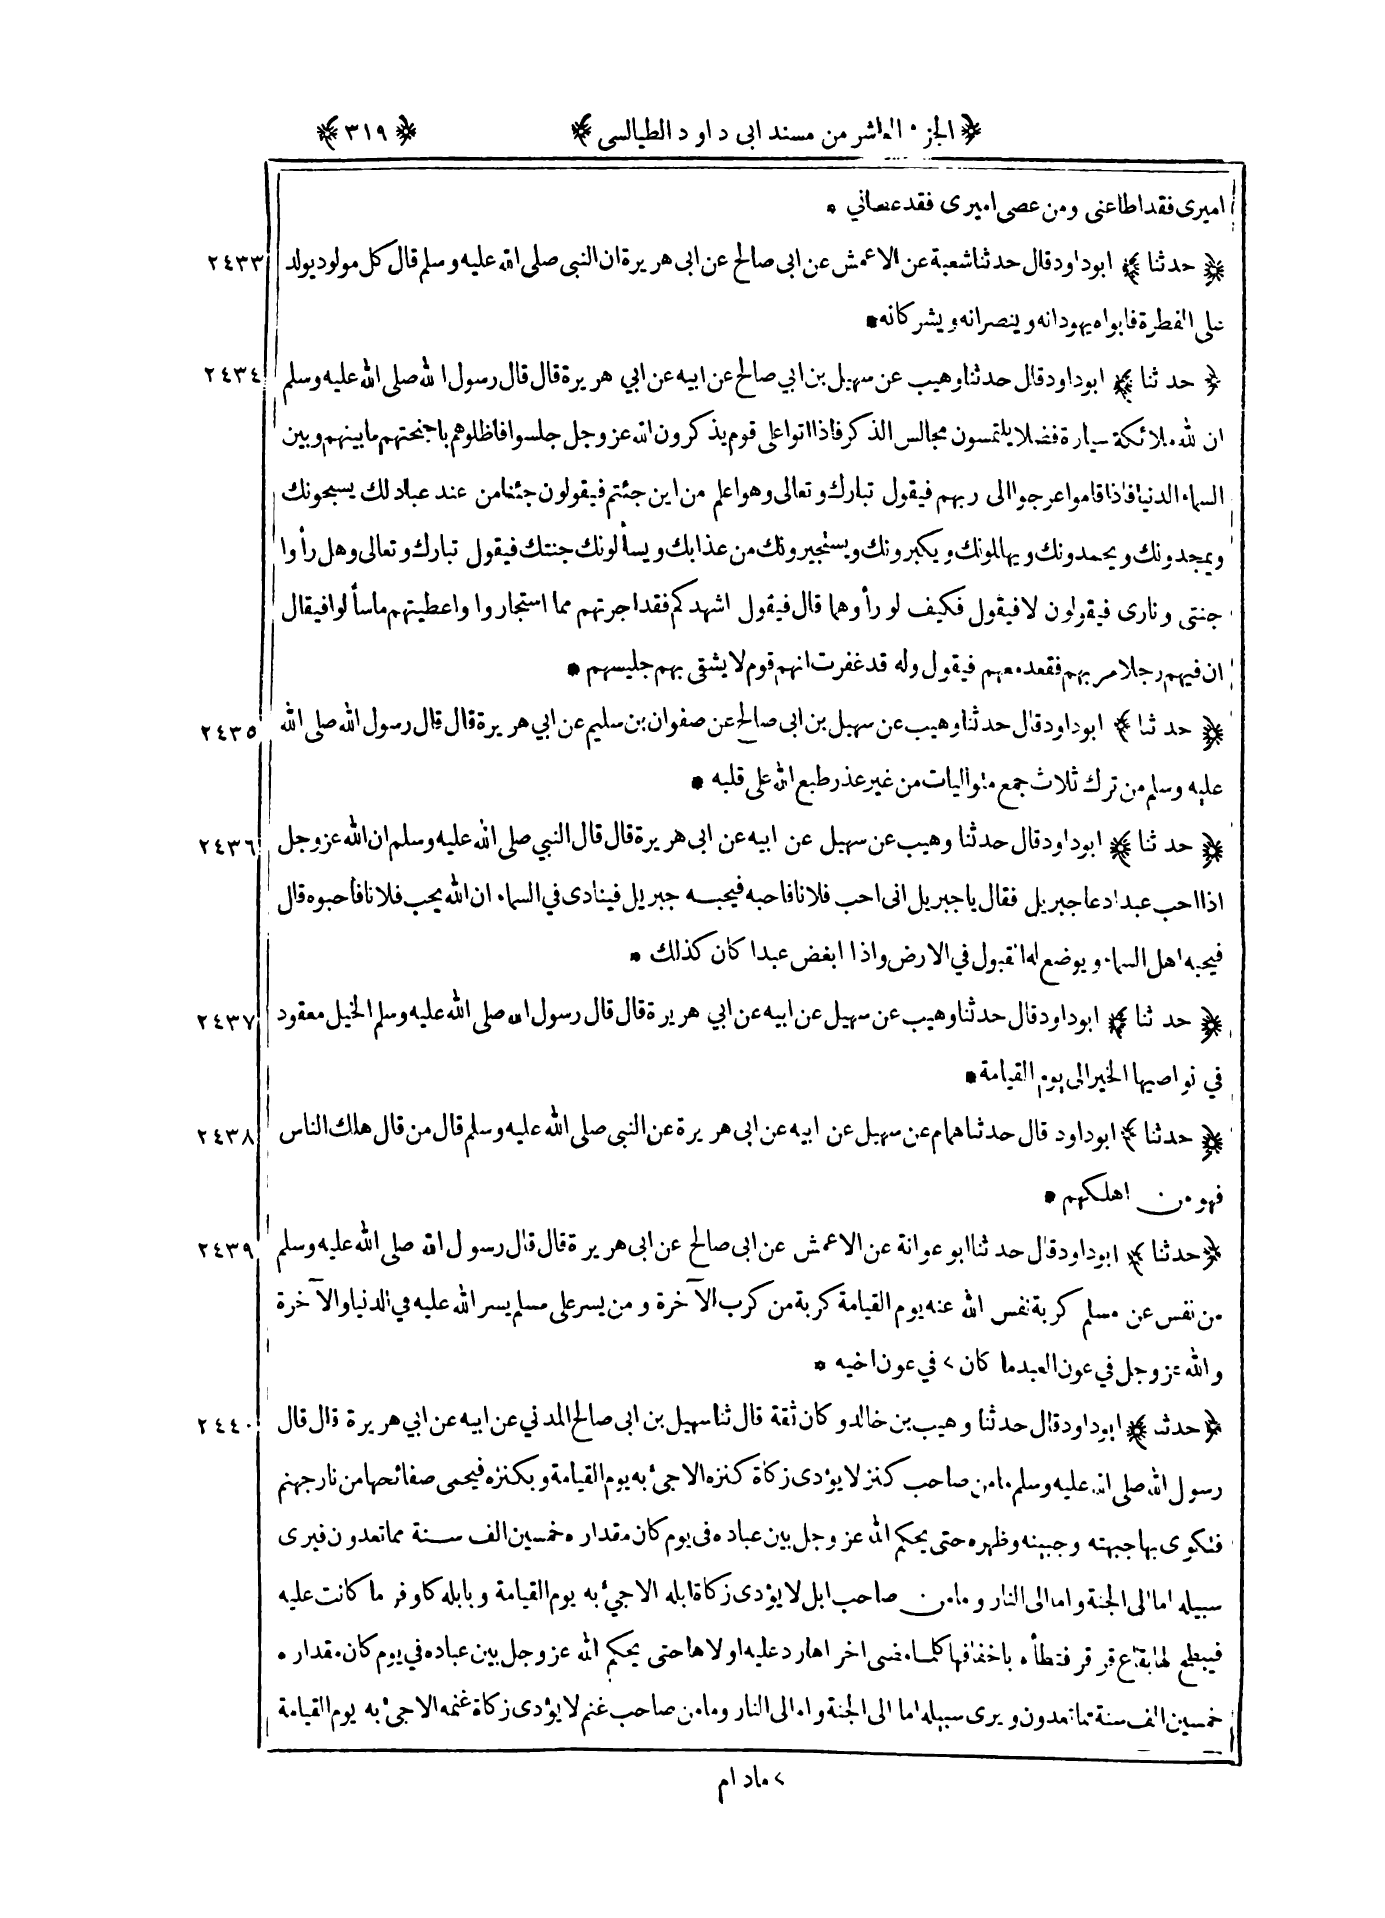 ﴿ الجزء العاشر من مسند ابى داود الطيالسى ﴾ ﴿ ٣١٩ ﴾
اميرى فقد اطاعنى ومن عصى اميرى فقد عصانى *
﴿ حدثنا ﴾ ابوداود قال حدثنا شعبة عن الاعمش عن ابى صالح عن ابى هريرة ان النبى صلى الله عليه وسلم قال كل مولود يولد ٢٤٣٣
على الفطرة فابواه يهودانه وينصرانه ويشركانه *
﴿ حدثنا ﴾ ابوداود قال حدثنا وهيب عن سهيل بن ابي صالح عن ابيه عن ابي هريرة قال قال رسول الله صلى الله عليه وسلم ٢٤٣٤
ان لله ملائكة سيارة فضلا يلتمسون مجالس الذكر فاذا اتوا على قوم يذكرون الله عز وجل جلسوا فاظلوهم باجنحتهم ما بينهم وبين
السماء الدنيا فاذا قاموا عرجوا الى ربهم فيقول تبارك وتعالى وهو اعلم من اين جئتم فيقولون جئنا من عند عباد لك يسبحونك
ويمجدونك ويحمدونك ويهللونك ويكبرونك ويستجيرونك من عذابك ويسألونك جنتك فيقول تبارك وتعالى وهل رأوا
جنتى ونارى فيقولون لا فيقول فكيف لو رأوهما قال فيقول اشهدكم فقد اجرتهم مما استجاروا واعطيتهم ما سألوا فيقال
ان فيهم رجلا مر بهم فقعد معهم فيقول وله قد غفرت انهم قوم لا يشقى بهم جليسهم *
﴿ حدثنا ﴾ ابوداود قال حدثنا وهيب عن سهيل بن ابى صالح عن صفوان بن سليم عن ابي هريرة قال قال رسول الله صلى الله ٢٤٣٥
عليه وسلم من ترك ثلاث جمع متواليات من غير عذر طبع الله على قلبه *
﴿ حدثنا ﴾ ابوداود قال حدثنا وهيب عن سهيل عن ابيه عن ابى هريرة قال قال النبي صلى الله عليه وسلم ان الله عز وجل ٢٤٣٦
اذا احب عبدا دعا جبريل فقال يا جبريل انى احب فلانا فاحبه فيحبه جبريل فينادى في السماء ان الله يحب فلانا فأحبوه قال
فيحبه اهل السماء ويوضع له القبول في الارض واذا ابغض عبدا كان كذلك *
﴿ حدثنا ﴾ ابوداود قال حدثنا وهيب عن سهيل عن ابيه عن ابي هريرة قال قال رسول الله صلى الله عليه وسلم الخيل معقود ٢٤٣٧
في نواصيها الخير الى يوم القيامة *
﴿ حدثنا ﴾ ابوداود قال حدثنا همام عن سهيل عن ابيه عن ابى هريرة عن النبى صلى الله عليه وسلم قال من قال هلك الناس ٢٤٣٨
فهو من اهلكهم *
﴿ حدثنا ﴾ ابوداود قال حدثنا ابو عوانة عن الاعمش عن ابى صالح عن ابى هريرة قال قال رسول الله صلى الله عليه وسلم ٢٤٣٩
من نفس عن مسلم كربة نفس الله عنه يوم القيامة كربة من كرب الآخرة ومن يسر على مسلم يسر الله عليه في الدنيا والآخرة
والله عز وجل في عون العبد ما كان > في عون اخيه *
﴿ حدثنا ﴾ ابوداود قال حدثنا وهيب بن خالد وكان ثقة قال ثنا سهيل بن ابى صالح المدني عن ابيه عن ابي هريرة قال قال ٢٤٤٠
رسول الله صلى الله عليه وسلم ما من صاحب كنز لا يؤدى زكاة كنزه الا جئ به يوم القيامة وبكنزه فيحمى صفائحها من نار جهنم
فتكوى بها جبهته وجبينه وظهره حتى يحكم الله عز وجل بين عباده فى يوم كان مقداره خمسين الف سنة مما تعدون فيرى
سبيله اما الى الجنة واما الى النار وما من صاحب ابل لا يؤدى زكاة ابله الا جئ به يوم القيامة وبابله كاوفر ما كانت عليه
فيبطح لها بقاع قرقر فتطأه باخفافها كلما مضى اخراها رد عليه اولاها حتى يحكم الله عز وجل بين عباده في يوم كان مقداره
خمسين الف سنة مما تعدون ويرى سبيله اما الى الجنة واما الى النار وما من صاحب غنم لا يؤدى زكاة غنمه الا جئ به يوم القيامة
> مادام